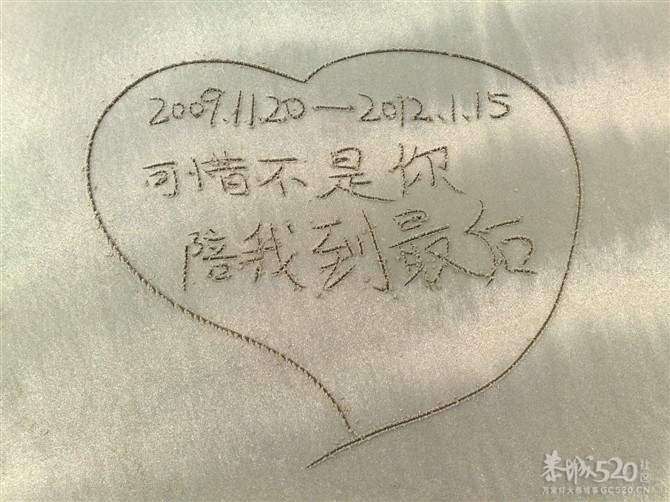 2009.11.20—2012.1.15
可惜不是你
陪我到最后
恭城520社区
GC520.CN